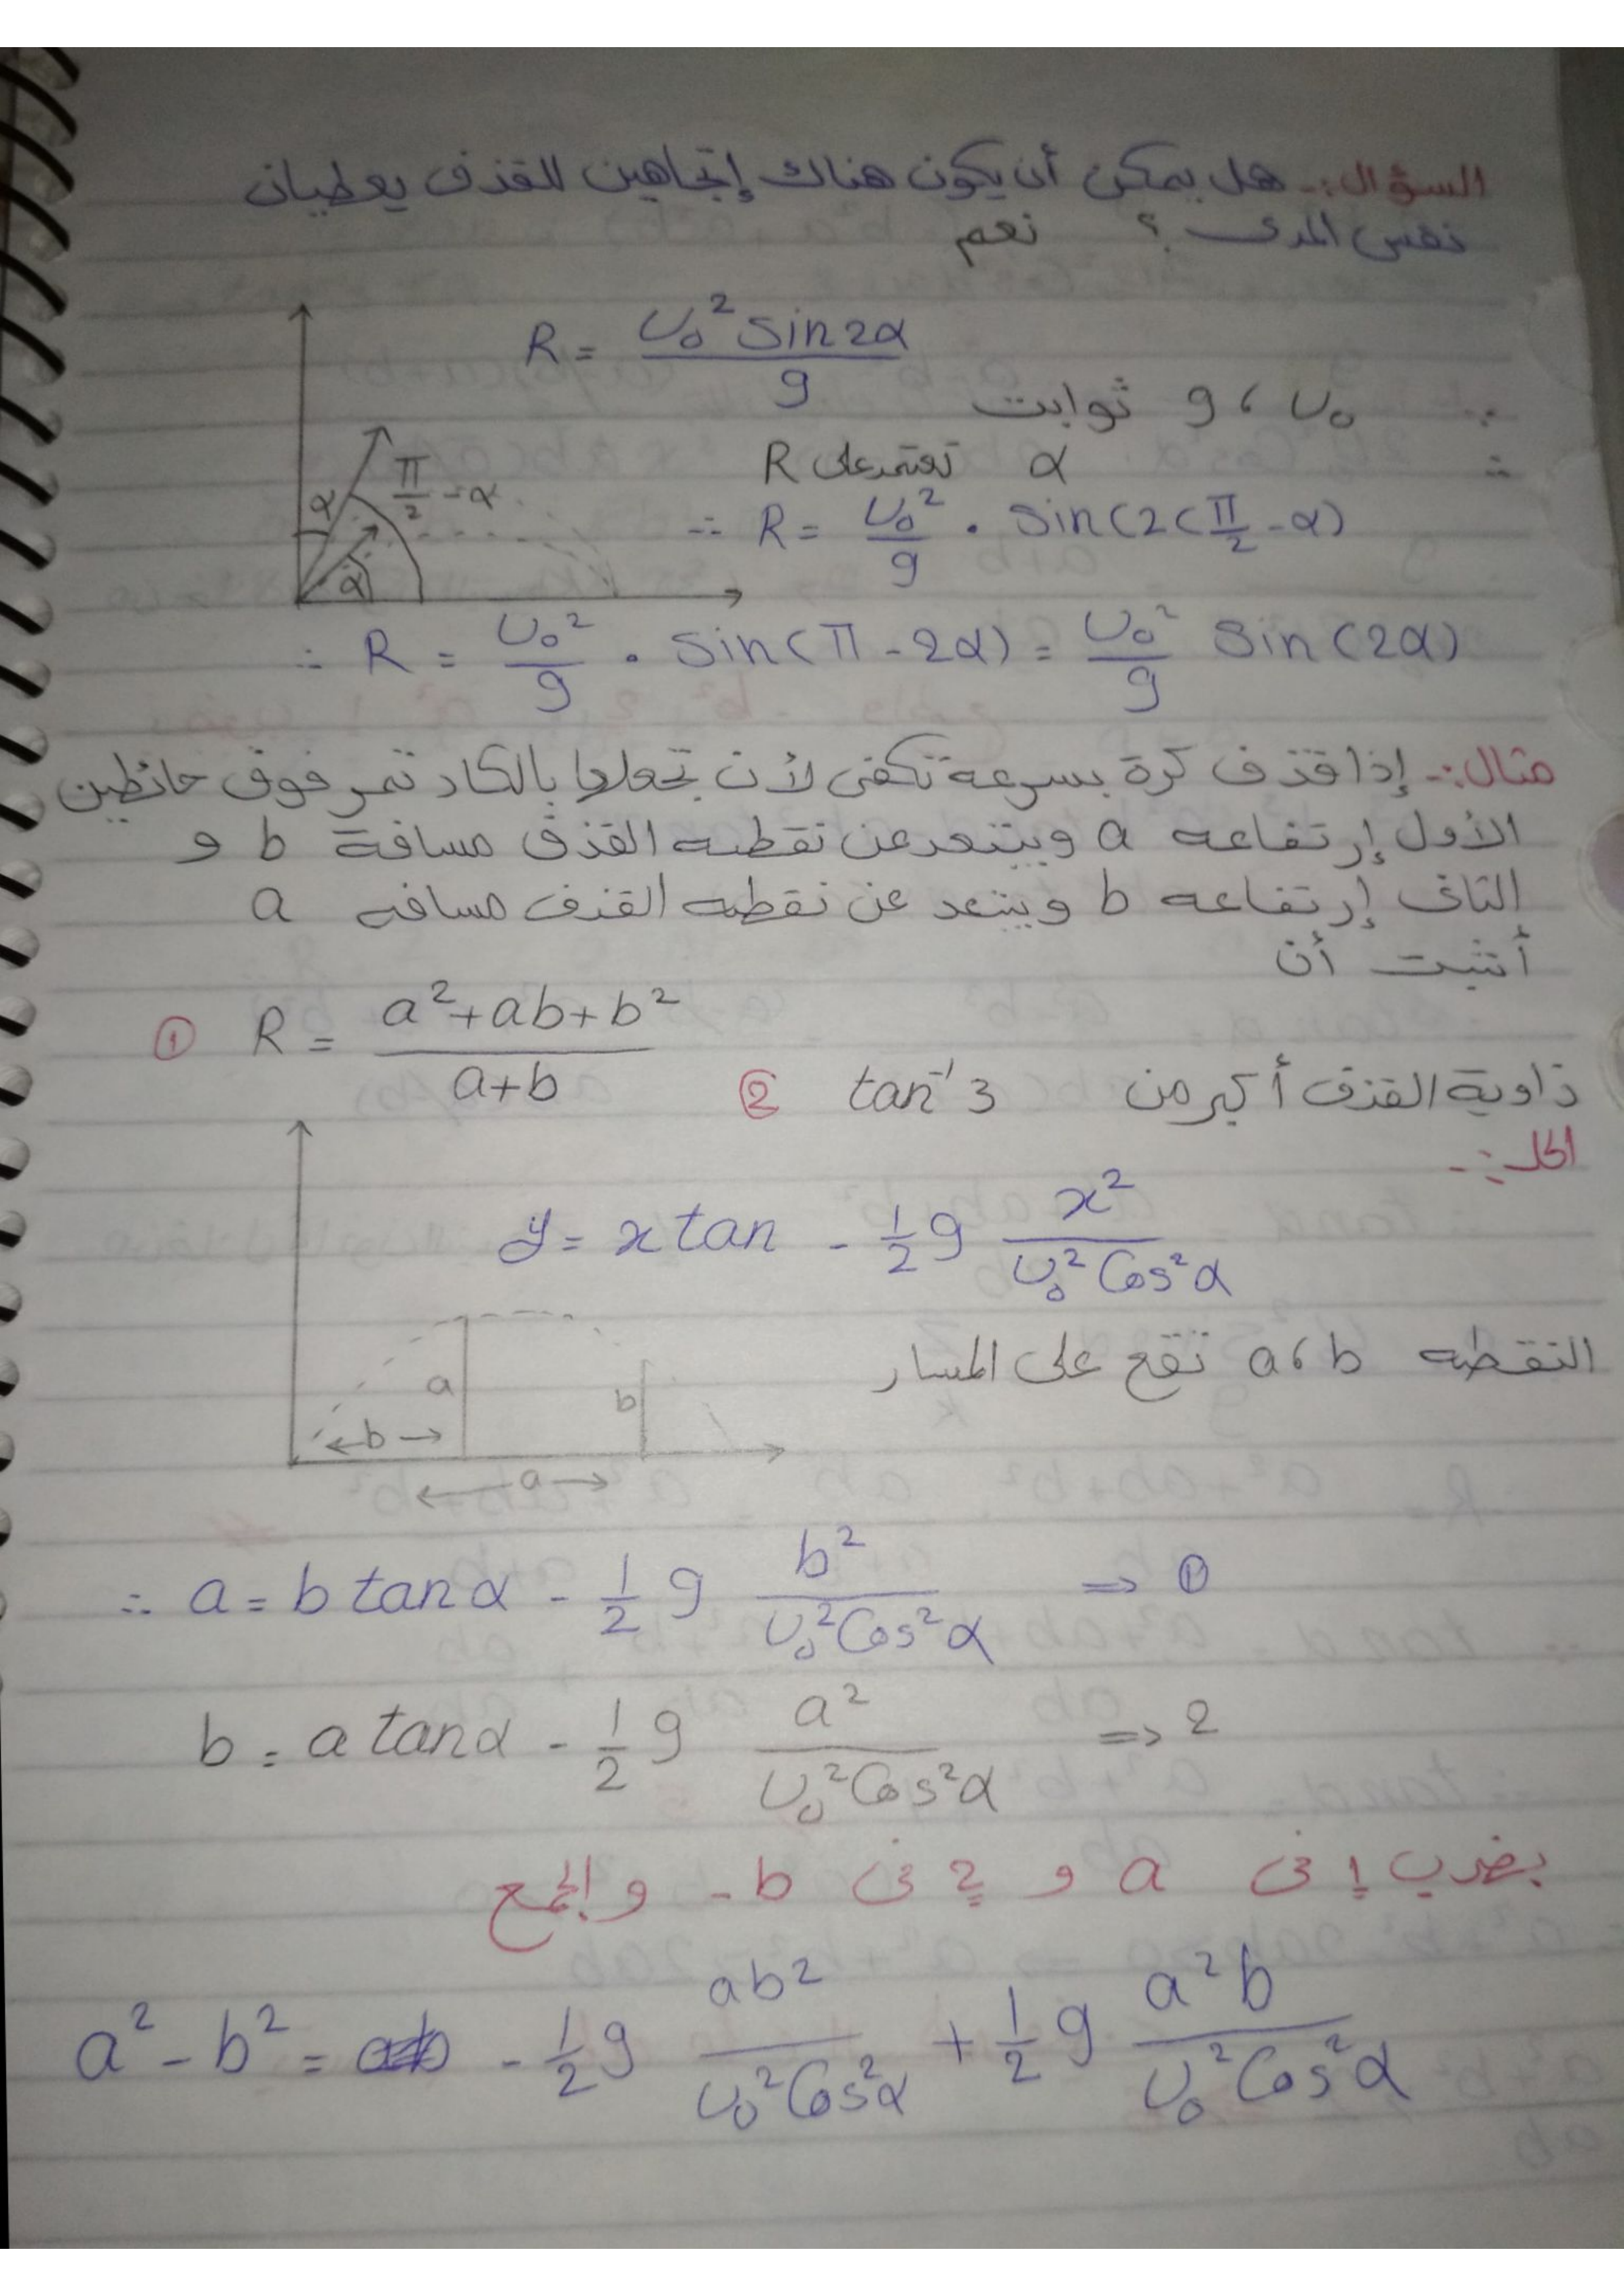 السؤال:- هل يمكن أن يكون هناك إتجاهين للقذف يعطيان
نفس المدى ؟ نعم
R = U₀² sin2α / g
∵ U₀ ، g ثوابت
∴ α تعتمد على R
π/2 - α
α
α
∴ R = U₀²/g . sin(2(π/2 - α)
∴ R = U₀²/g . sin(π - 2α) = U₀²/g sin(2α)
مثال:- إذا قذف كرة بسرعة تكفى لأن تجعلها بالكاد تمر فوق حائطين
الأول إرتفاعه a ويبتعد عن نقطه القذف مسافة b و
الثانى إرتفاعه b ويبتعد عن نقطه القذف مسافه a
أثبت أن
① R = a²+ab+b² / a+b
② tan⁻¹3 زاوية القذف أكبر من
الحل:-
y = x tan - 1/2 g x² / U₀² Cos²α
النقطه a، b تقع على المسار
a
b
b
a
∴ a = b tanα - 1/2 g b² / U₀² Cos²α ⇒ ①
b = a tanα - 1/2 g a² / U₀² Cos²α ⇒ 2
بضرب 1 فى a و 2 فى -b والجمع
a² - b² = - 1/2 g ab² / U₀² Cos²α + 1/2 g a²b / U₀² Cos²α